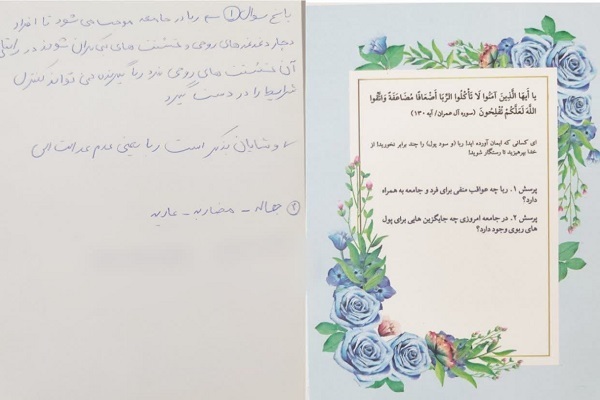 یا أَیهَا الَّذِینَ آمَنُوا لَا تَأْکُلُوا الرِّبَا أَضْعَافًا مُضَاعَفَةً وَاتَّقُوا
اللَّهَ لَعَلَّکُمْ تُفْلِحُونَ (سوره آل عمران/ آیه ۱۳۰)
ای کسانی که ایمان آورده اید! ربا (و سود پول) را چند برابر نخورید! از
خدا بپرهیزید تا رستگار شوید!
پرسش ۱. ربا چه عواقب منفی برای فرد و جامعه به همراه
دارد؟
پرسش ۲. در جامعه امروزی چه جایگزین هایی برای پول
های ربوی وجود دارد؟
پاسخ سوال ۱ ربا در جامعه موجب می شود تا افراد
دچار دغدغه های روحی و خشونت های شوند در راستای
آن خشونت های روحی فرد ربا گیرنده نمی تواند کنترل
شرایط را در دست گیرد
و شایان ذکر است ربا یعنی عدم عدالت الهی
۲ جعاله - مضاربه - عاریه